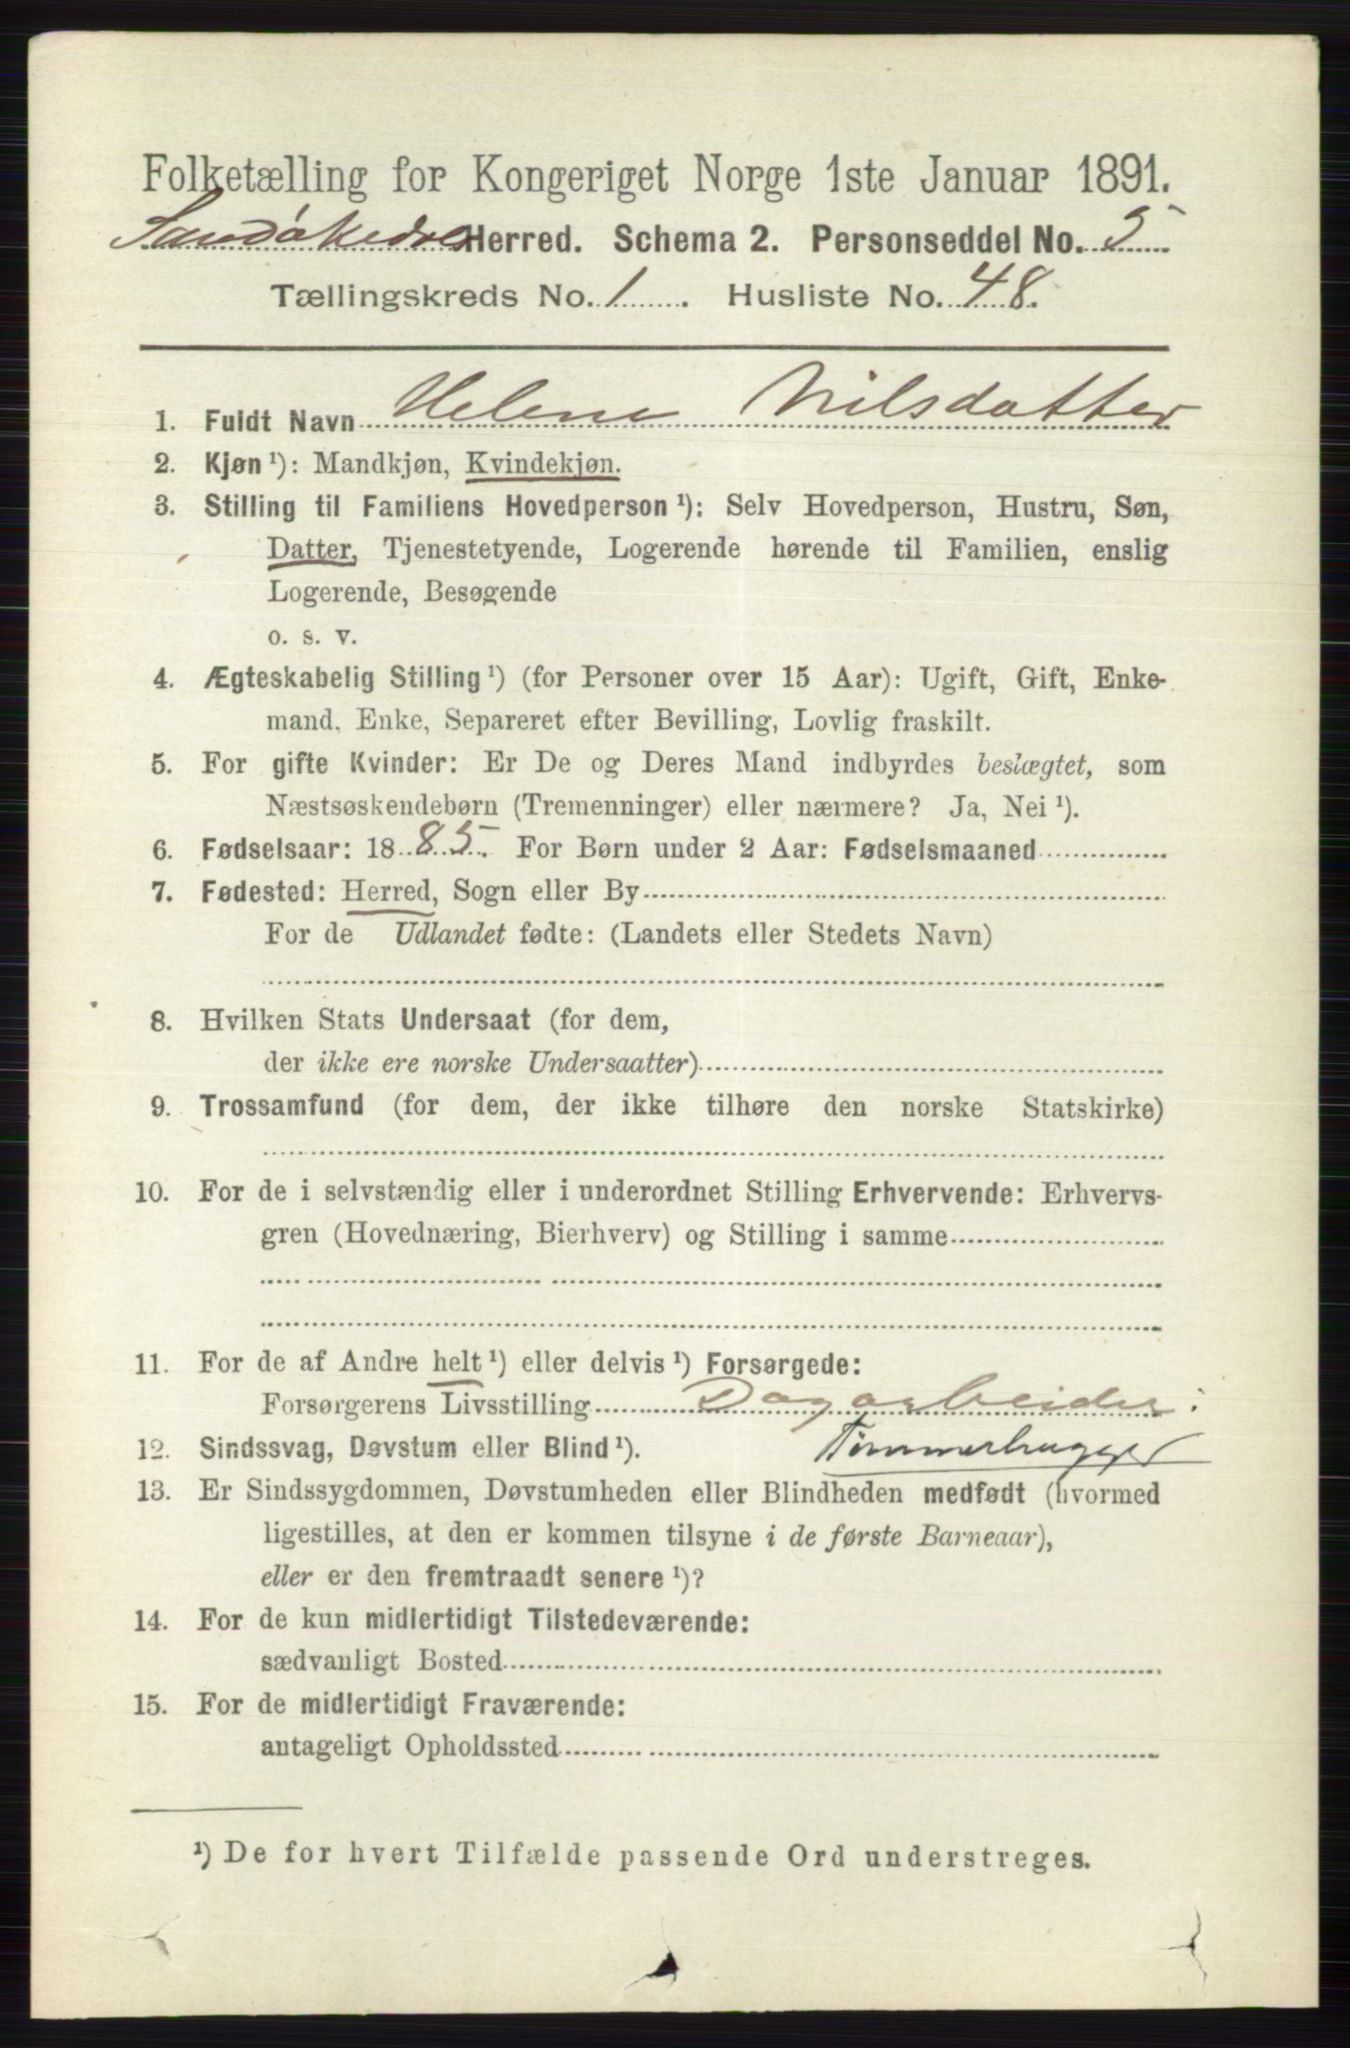 Folketælling for Kongeriget Norge 1ste Januar 1891.
Sandökedals Herred. Schema 2. Personseddel No. 5
Tællingskreds No. 1. Husliste No. 48.
1. Fuldt Navn Helene Nilsdatter
2. Kjøn ¹): Mandkjøn, Kvindekjøn.
3. Stilling til Familiens Hovedperson ¹): Selv Hovedperson, Hustru, Søn,
Datter, Tjenestetyende, Logerende hørende til Familien, enslig
Logerende, Besøgende
o. s. v.
4. Ægteskabelig Stilling ¹) (for Personer over 15 Aar): Ugift, Gift, Enke-
mand, Enke, Separeret efter Bevilling, Lovlig fraskilt.
5. For gifte Kvinder: Er De og Deres Mand indbyrdes beslægtet, som
Næstsøskendebørn (Tremenninger) eller nærmere? Ja, Nei ¹).
6. Fødselsaar: 1885. For Børn under 2 Aar: Fødselsmaaned
7. Fødested: Herred, Sogn eller By
For de Udlandet fødte: (Landets eller Stedets Navn)
8. Hvilken Stats Undersaat (for dem,
der ikke ere norske Undersaatter)
9. Trossamfund (for dem, der ikke tilhøre den norske Statskirke)
10. For de i selvstændig eller i underordnet Stilling Erhvervende: Erhvervs-
gren (Hovednæring, Bierhverv) og Stilling i samme
11. For de af Andre helt ¹) eller delvis ¹) Forsørgede:
Forsørgerens Livsstilling Dagarbeider:
12. Sindssvag, Døvstum eller Blind ¹). Tømmerhugger
13. Er Sindssygdommen, Døvstumheden eller Blindheden medfødt (hvormed
ligestilles, at den er kommen tilsyne i de første Barneaar),
eller er den fremtraadt senere ¹)?
14. For de kun midlertidigt Tilstedeværende:
sædvanligt Bosted
15. For de midlertidigt Fraværende:
antageligt Opholdssted
¹) De for hvert Tilfælde passende Ord understreges.